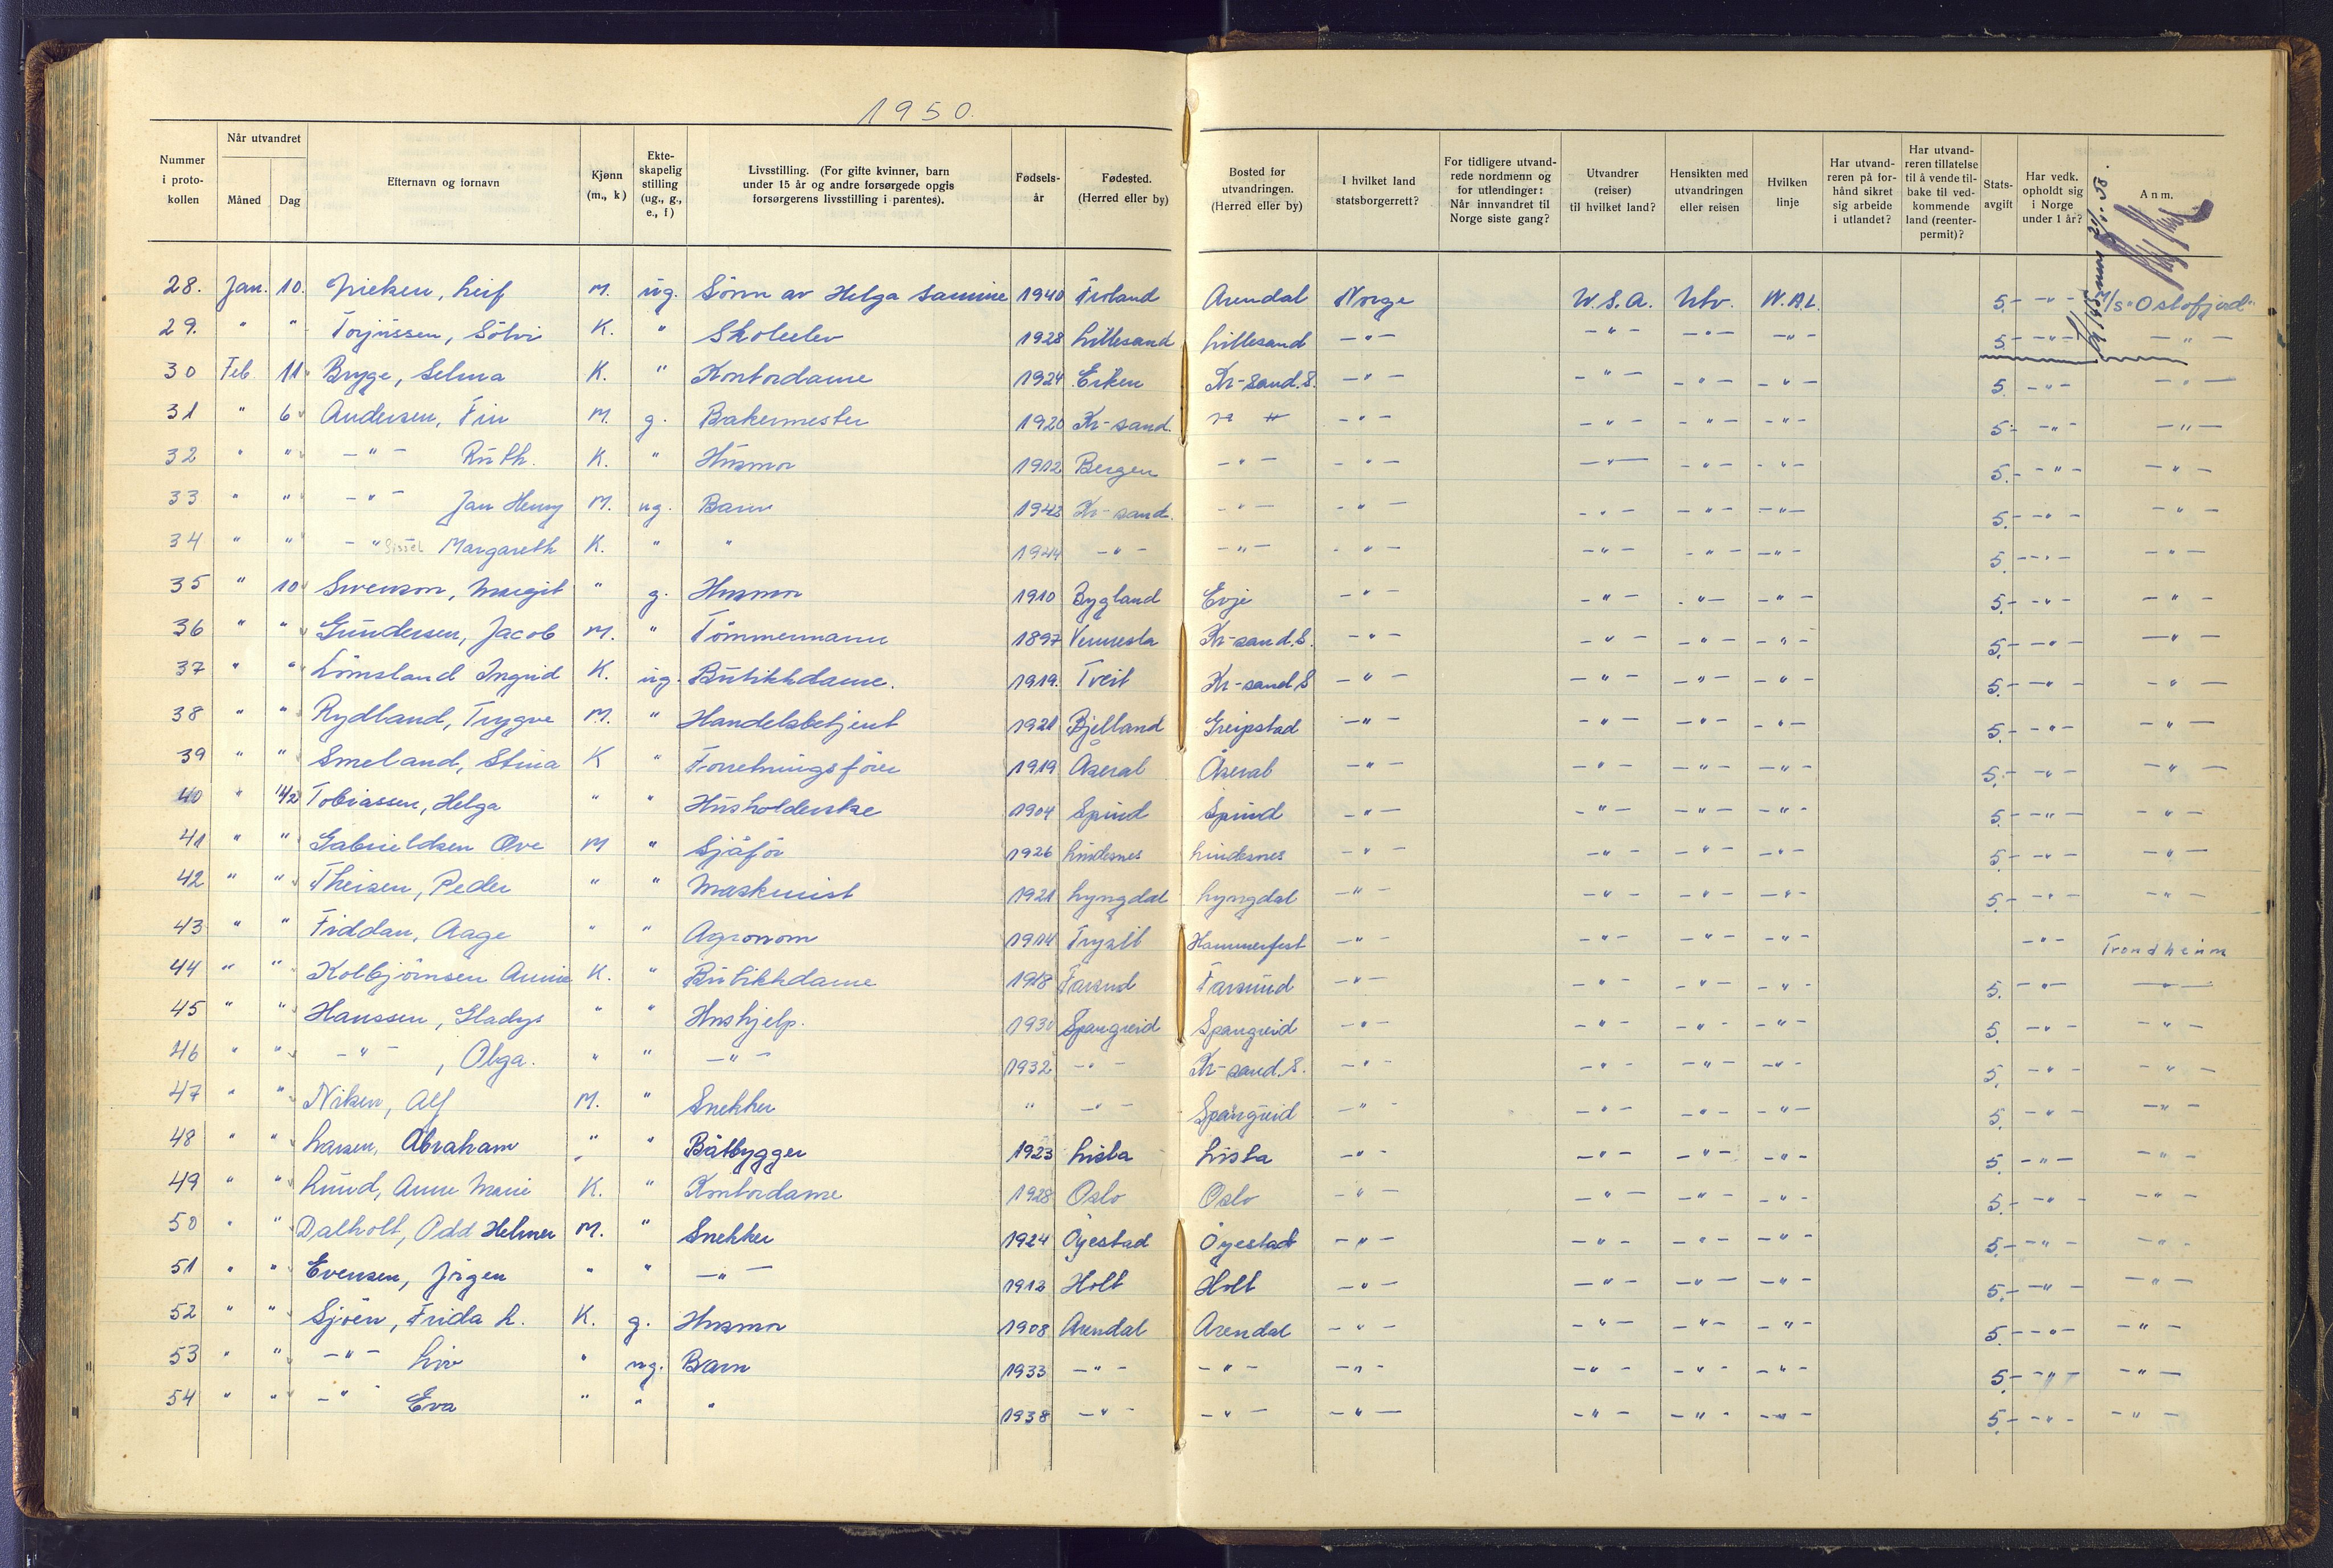 1950.
Nummer i proto-kollen | Når utvandret Måned Dag | Efternavn og fornavn | Kjønn (m., k) | Ekte-skapelig stilling (ug., g., e., f) | Livsstilling. (For gifte kvinner, barn under 15 år og andre forsørgede opgis forsørgerens livsstilling i parentes). | Fødsels-år | Fødested. (Herred eller by) | Bosted før utvandringen. (Herred eller by) | I hvilket land statsborgerrett? | For tidligere utvand-rede nordmenn og for utlendinger: Når innvandret til Norge siste gang? | Utvandrer (reiser) til hvilket land? | Hensikten med utvandringen eller reisen | Hvilken linje | Har utvand-reren på for-hånd sikret sig arbeide i utlandet? | Har utvand-reren tillatelse til å vende til-bake til ved-kommende land (reenter-permit)? | Stats-avgift | Har vedk. opholdt sig i Norge under 1 år? | Anm.
28. Jan. 10. Leif M. ug. Sønn av Helga 1940 Froland Arendal Norge U.S.A. Utv. N.A.L. 5.- -"- M/s "Oslofjord"
29. " " Torjussen, Sölvi K. " Skoleelev 1928 Lillesand Lillesand -"- -"- -"- -"- 5.- -"- -"-
30 Feb. 11 Bryge, Selma K. " Kontordame 1924 Eiken Kr-sand.S. -"- -"- -"- -"- 5. -"- -"-
31 " 6 Andersen, Fin M. g. Bakermester 1920 Kr-sand. " " -"- -"- -"- -"- 5.- -"- -"-
32 " " -"- Ruth. K. " Husmor 1912 Bergen -"- -"- -"- -"- -"- 5.- -"- -"-
33 " " -"- Jan Henry M. ug. Barn 1942 Kr-sand. -"- -"- -"- -"- -"- 5.- -"- -"-
34 " " -"- Sissel Margareth K. " " 1944 -"- -"- -"- -"- -"- -"- 5.- -"- -"-
35 " 10 Swenson, Margit " g. Husmor 1910 Bygland Evje -"- -"- -"- -"- 5.- -"- -"-
36 " " Gundersen, Jacob M. " Tömmermann 1897 Vennesla Kr-sand.S. -"- -"- -"- -"- 5.- -"- -"-
37 " " Lömsland Ingrid K. ug. Butikkdame. 1919. Tveit Kr-sand S -"- -"- -"- -"- 5.- -"- -"-
38 " " Rydland, Trygve M. " Handelsbetjent 1921 Bjelland Greipstad -"- -"- -"- -"- 5.- -"- -"-
39 " " Smeland, Stina K " Forretningsförer 1919 Åseral Åseral -"- -"- -"- -"- 5.- -"- -"-
40 " 14/2 Tobiassen, Helga " " Husholderske 1904 Spind Spind -"- -"- -"- -"- 5.- -"- -"-
41 " " Gabrieldsen Ove M " Sjåför 1926 Lindesnes Lindesnes -"- -"- -"- -"- 5.- -"- -"-
42 " " Theisen, Peder " " Maskinist 1921 Lyngdal Lyngdal -"- -"- -"- -"- 5.- -"- -"-
43 " " Fiddan, Aage " " Agronom 1914 Trysil Hammerfest -"- -"- -"- -"- -"- Trondheim
44 " " Kolbjörnsen Annie K. " Butikkdame 1918 Farsund Farsund -"- -"- -"- -"- 5. -"- -"-
45 " " Hanssen, Gladys " " Hushjelp. 1930 Spangreid Spangreid -"- -"- -"- -"- 5. -"- -"-
46 " " -"-, Olga. " " -"- 1932 -"- Kr-sand.S. -"- -"- -"- -"- 5. -"- -"-
47 " " Nilsen, Alf M. " Snekker " -"- Spangreid -"- -"- -"- -"- 5. -"- -"-
48 " " Larsen, Abraham " " Båtbygger 1923 Lista Lista -"- -"- -"- -"- 5. -"- -"-
49 " " Lund, Anne Marie K. " Kontordame 1928 Oslo Oslo -"- -"- -"- -"- 5.- -"- -"-
50 " " Dalholt, Odd Helmer M. " Snekker 1924 Öyestad Öyestad -"- -"- -"- -"- 5.- -"- -"-
51 " " Evensen, Jörgen " " -"- 1912 Holt Holt -"- -"- -"- -"- 5.- -"- -"-
52 " " Sjöen, Frida L. K. g. Husmor 1908 Arendal Arendal -"- -"- -"- -"- 5.- -"- -"-
53 " " -"- Liv " ug. Barn 1933 -"- -"- -"- -"- -"- -"- 5.- -"- -"-
54 " " -"- Eva " " " 1938 -"- -"- -"- -"- -"- -"- 5.- -"- -"-